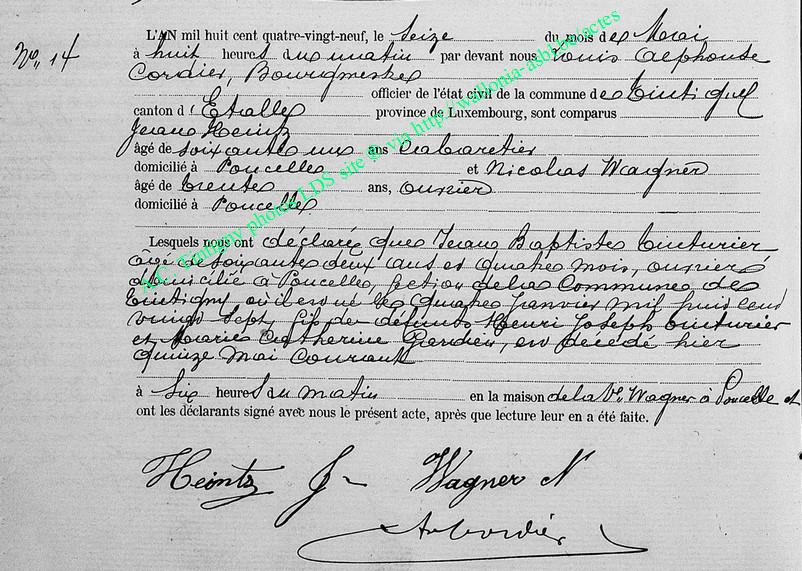 No 14
L'AN mil huit cent quatre-vingt-neuf, le Seize du mois de Mai
à huit heures du matin par devant nous Louis Alphonse
Cordier, Bourgmestre
officier de l'état civil de la commune de Tintigny
canton d'Etalle province de Luxembourg, sont comparus
Jean Heintz
âgé de soixante un ans Cabaretier
domicilié à Poncelle et Nicolas Wagner
âgé de trente ans, ouvrier
domicilié à Poncelle
Lesquels nous ont déclaré que Jean Baptiste Couturier
âgé de soixante deux ans et quatre mois, ouvrier
domicilié à Poncelle, section de la Commune de
Tintigny, où il est né le quatre Janvier mil huit cent
vingt sept, fils de défunts Henri Joseph Couturier
et Marie Catherine, est décédé hier
quinze Mai courant
à six heures du matin en la maison de la Ve Wagner à Poncelle et
ont les déclarants signé avec nous le présent acte, après que lecture leur en a été faite.
Heintz J Wagner N
ALCordier
A.C. Tintigny photos LDS site via http://wallonia-asbl.be/actes